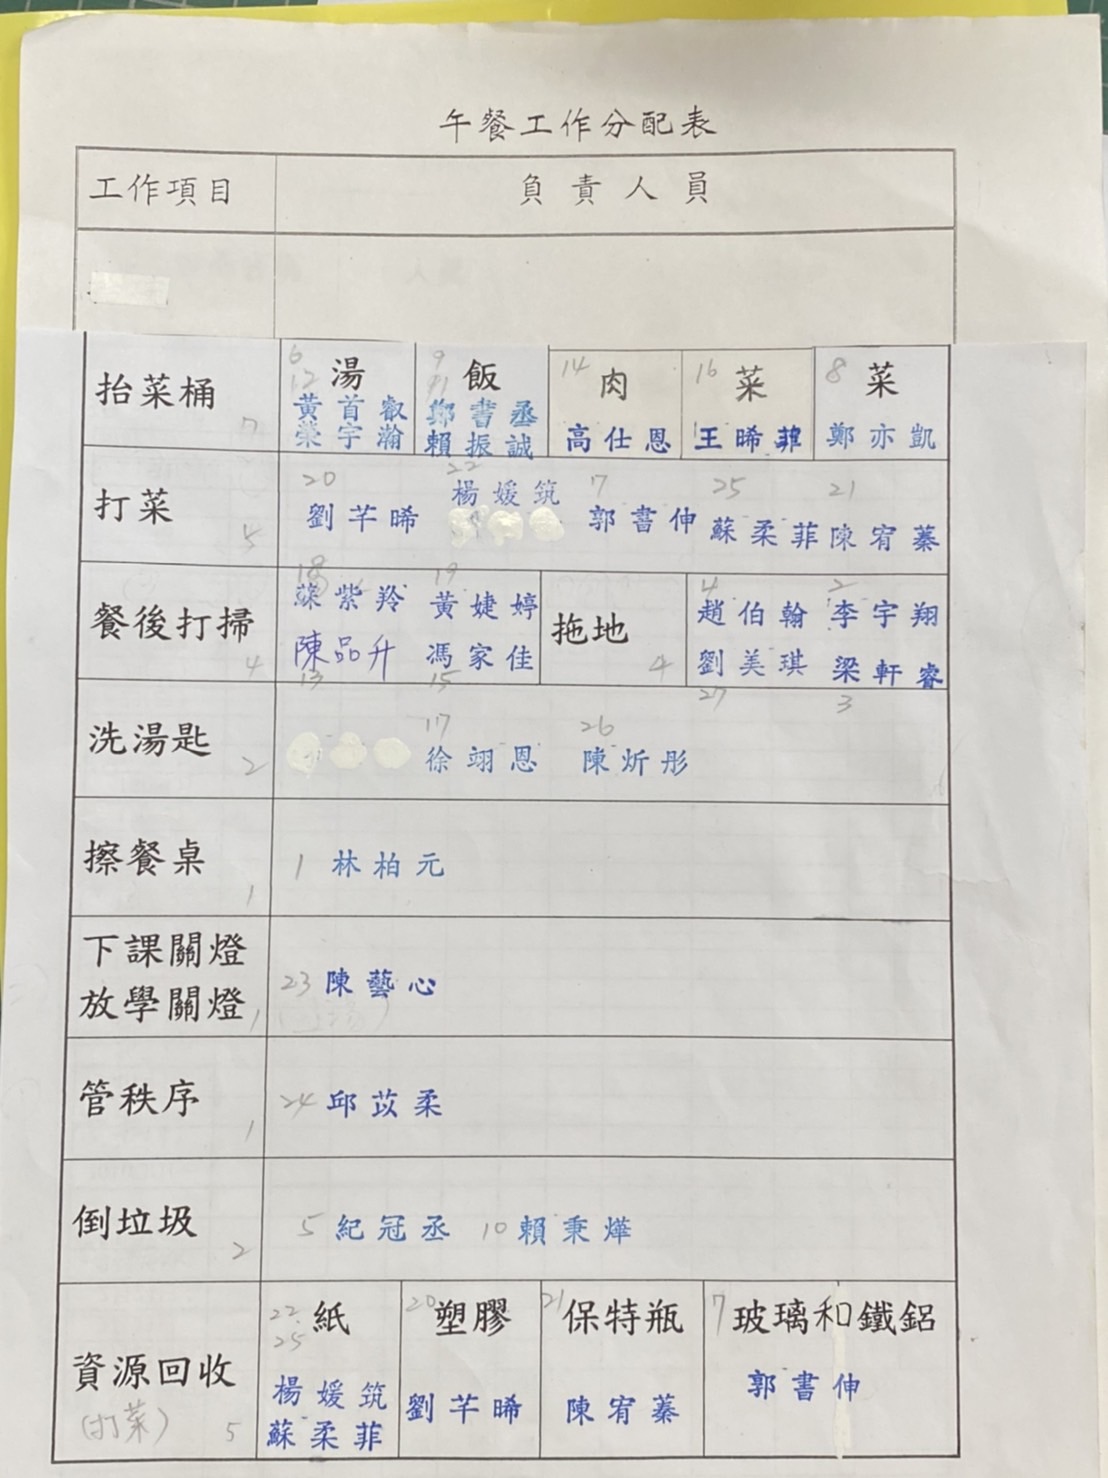 午餐工作分配表
工作項目 負責人員
抬菜桶 7
6 12 湯 黃首叡 榮宇瀚
9 11 飯 鄭書丞 賴振誠
14 肉 高仕恩
16 菜 王晞菲
8 菜 鄭亦凱
打菜 5
20 劉芊晞
22 楊媛筑
7 郭書伸
25 蘇柔菲
21 陳宥蓁
餐後打掃 4
18 紫羚
19 黃婕婷
陳品升 13
馮家佳 15
拖地 4
4 趙伯翰
2 李宇翔
劉美琪 27
梁軒睿 3
洗湯匙 2
17 徐翊恩
26 陳炘彤
擦餐桌 1
1 林柏元
下課關燈
放學關燈 1
23 陳藝心
管秩序 1
24 邱苡柔
倒垃圾 2
5 紀冠丞 10 賴秉燁
資源回收
(打菜) 5
22 25 紙
楊媛筑
蘇柔菲
20 塑膠
劉芊晞
21 保特瓶
陳宥蓁
7 玻璃和鐵鋁
郭書伸